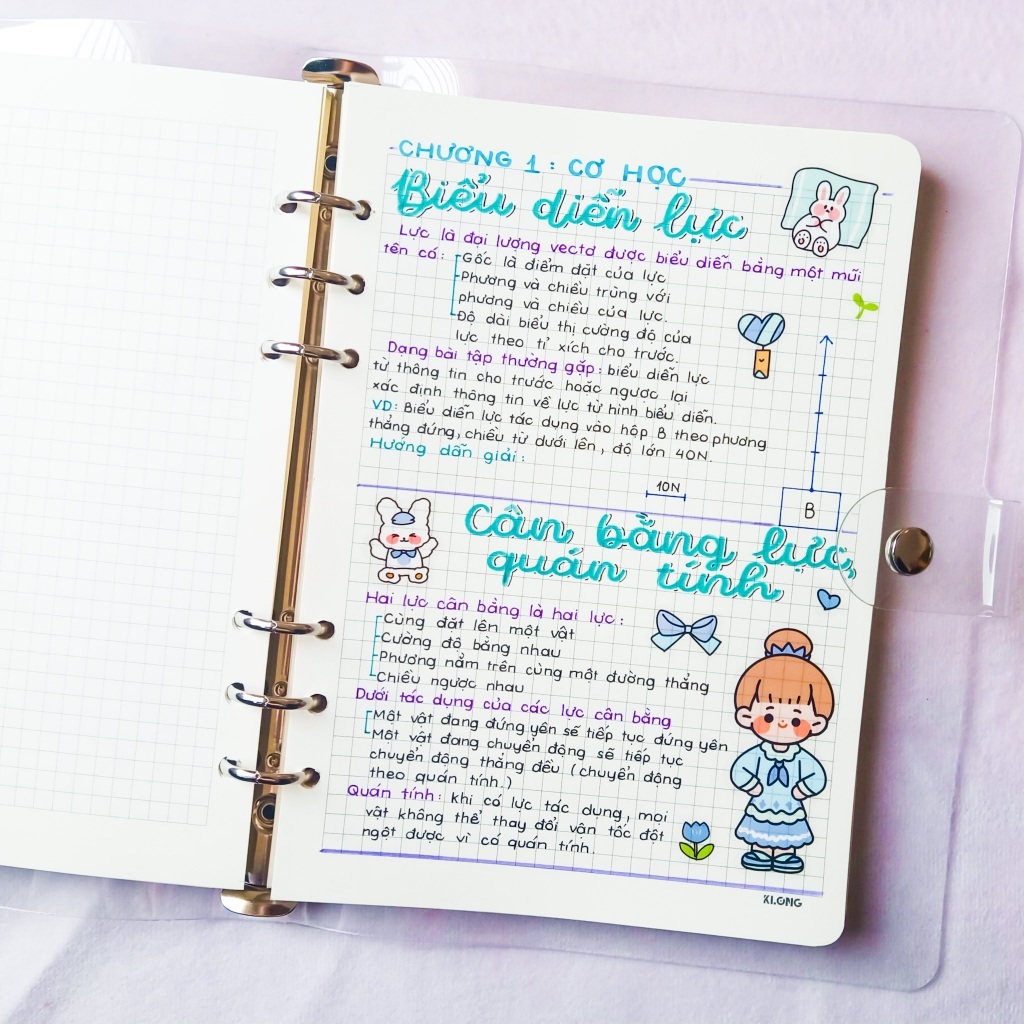 CHƯƠNG 1: CƠ HỌC
Biểu diễn lực
Lực là đại lượng vectơ được biểu diễn bằng một mũi
tên có:
Gốc là điểm đặt của lực
Phương và chiều trùng với
phương và chiều của lực.
Độ dài biểu thị cường độ của
lực theo tỉ xích cho trước.
Dạng bài tập thường gặp: biểu diễn lực
từ thông tin cho trước hoặc ngược lại
xác định thông tin về lực từ hình biểu diễn.
VD: Biểu diễn lực tác dụng vào hộp B theo phương
thẳng đứng, chiều từ dưới lên, độ lớn 40N.
Hướng dẫn giải:
10N
B
Cân bằng lực,
quán tính
Hai lực cân bằng là hai lực:
Cùng đặt lên một vật
Cường độ bằng nhau
Phương nằm trên cùng một đường thẳng
Chiều ngược nhau
Dưới tác dụng của các lực cân bằng
Một vật đang đứng yên sẽ tiếp tục đứng yên
Một vật đang chuyển động sẽ tiếp tục
chuyển động thẳng đều (chuyển động
theo quán tính.)
Quán tính: khi có lực tác dụng, mọi
vật không thể thay đổi vận tốc đột
ngột được vì có quán tính.
KLONG